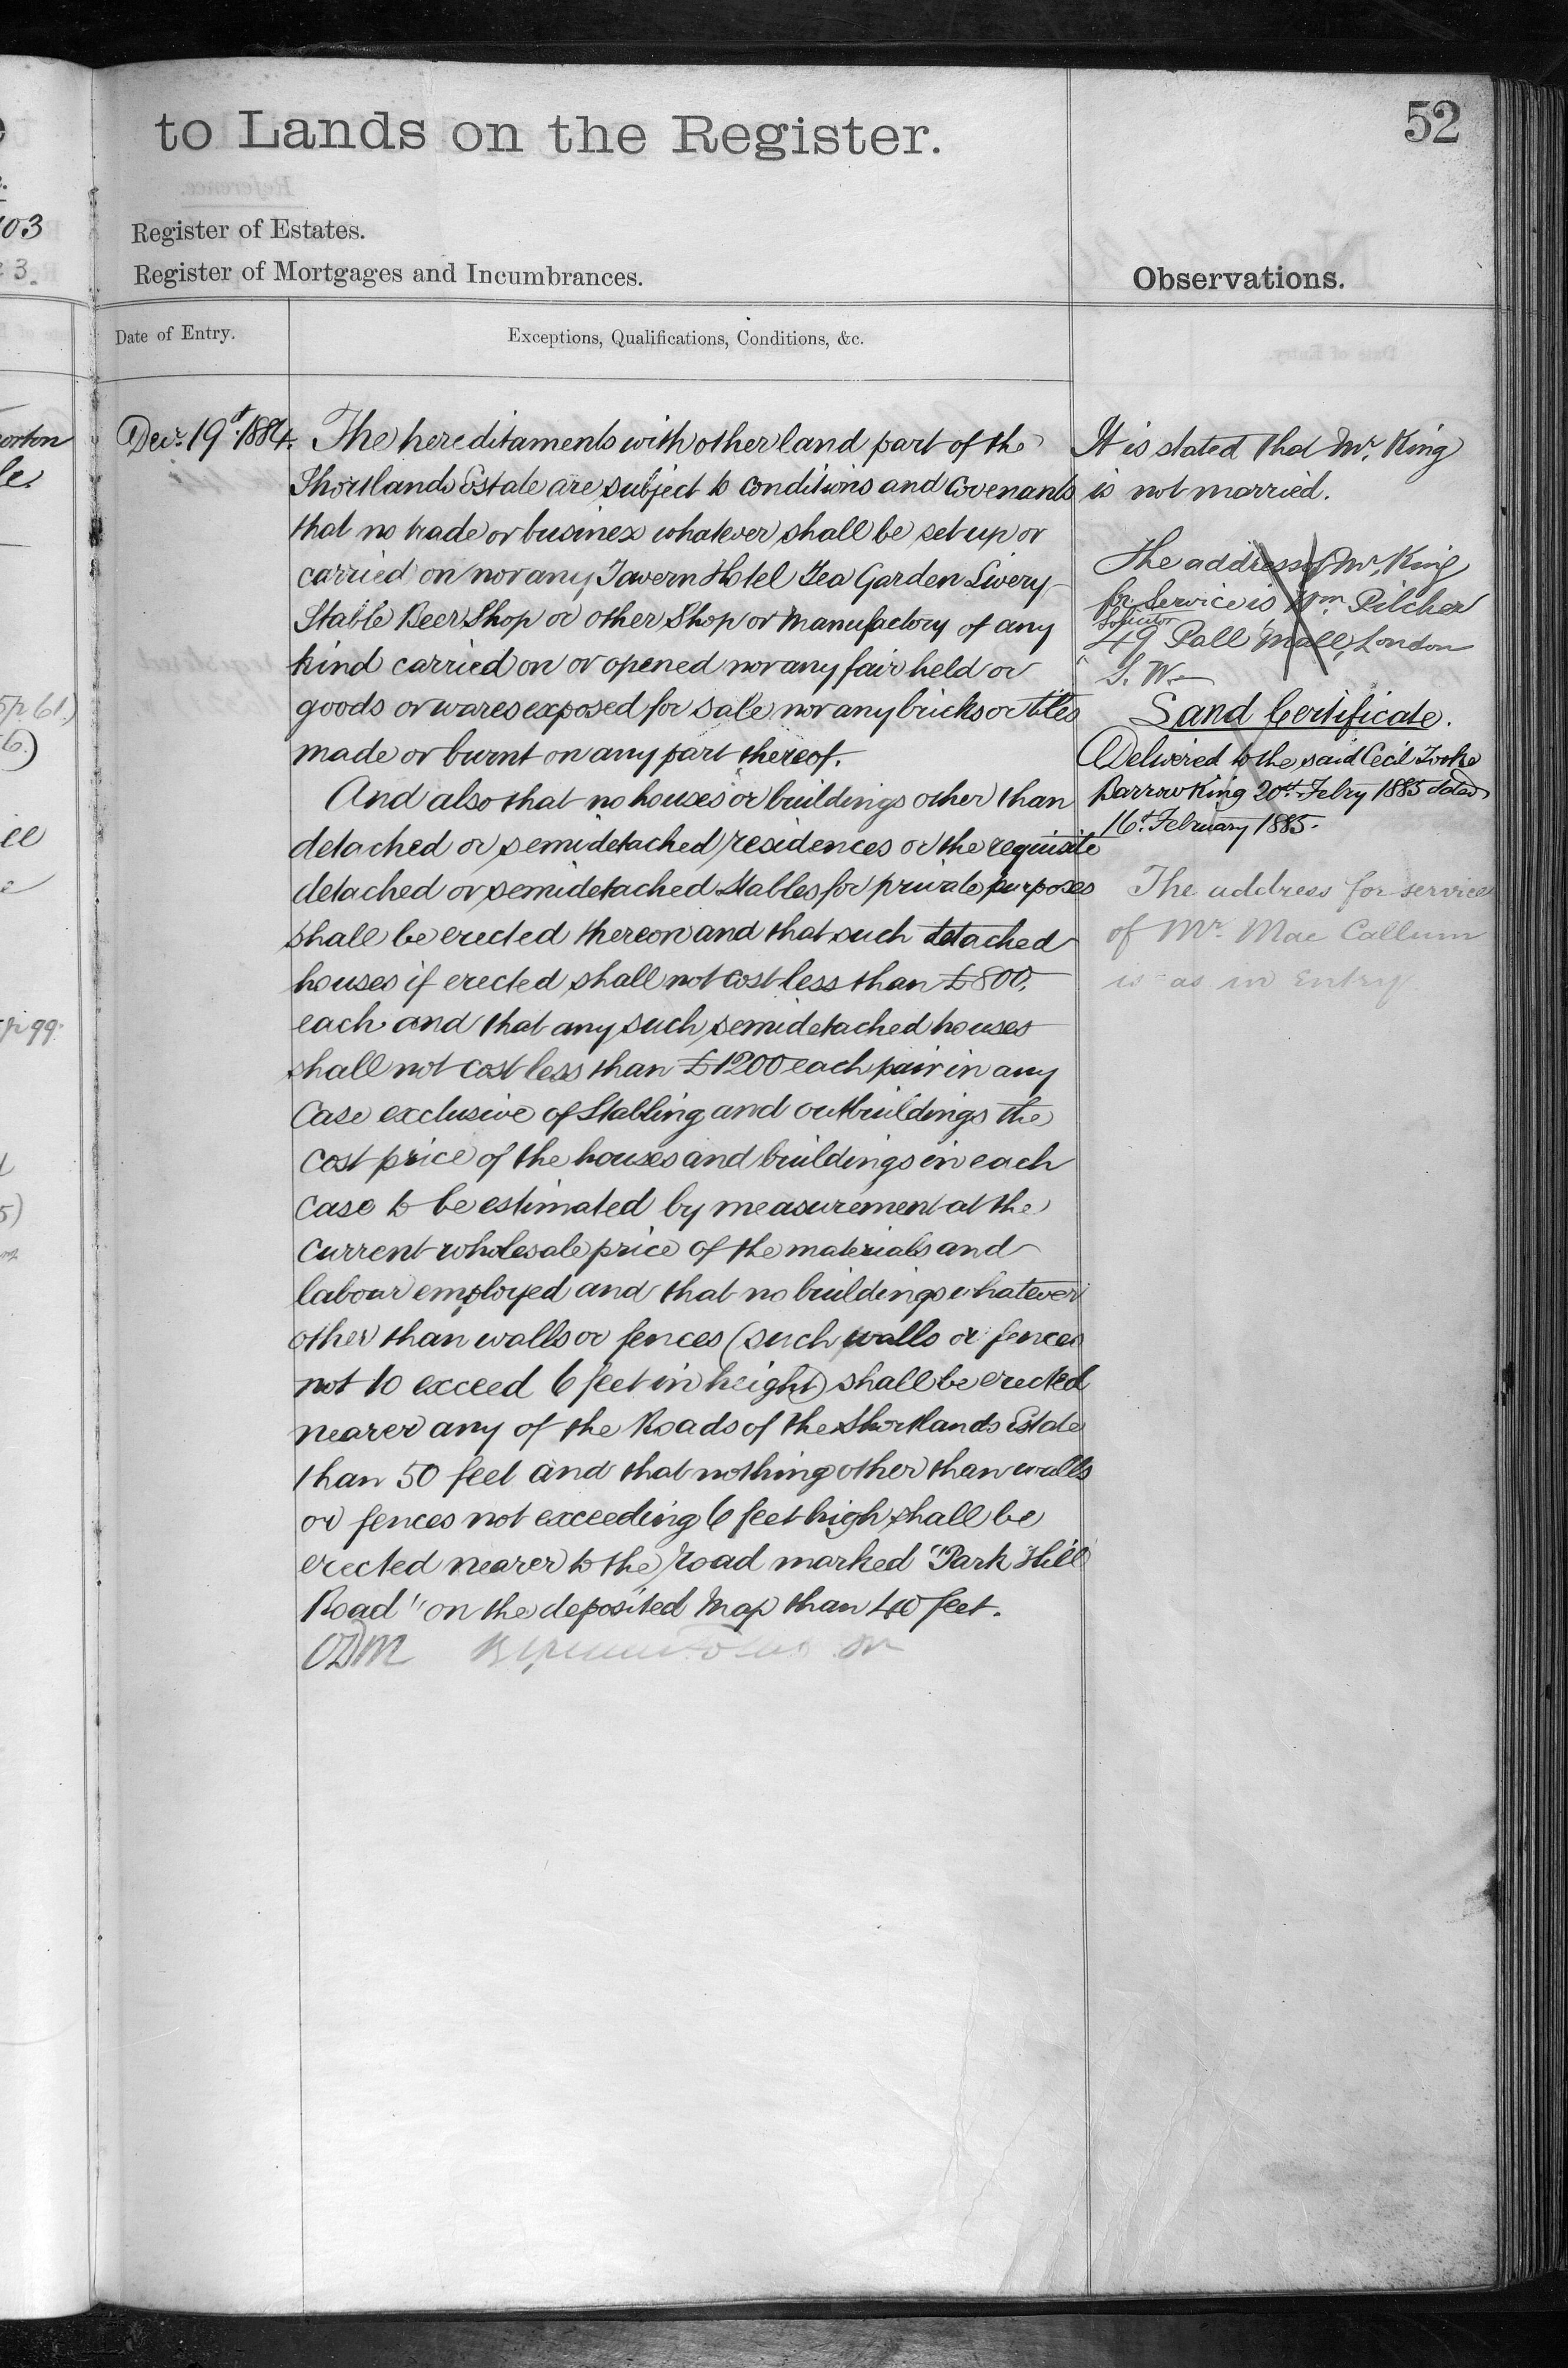 to Lands on the Register.
52
Register of Estates.
Register of Mortgages and Incumbrances.
Observations.
Date of Entry.
Exceptions, Qualifications, Conditions, &c.
Decr. 19t. 1884.
The hereditaments with other land part of the
Shortlands Estate are subject to conditions and Covenants
that no trade or business whatever shall be set up or
carried on nor any Tavern Hotel Tea Garden Livery
Stable Beer Shop or other Shop or Manufactory of any
kind carried on or opened nor any fair held or
goods or wares exposed for sale nor any bricks or tiles
made or burnt on any part thereof.
And also that no houses or buildings other than
detached or semidetached residences or the requisite
detached or semidetached Stables for private purposes
shall be erected thereon and that such detached
houses if erected shall not cost less than £800.
each and that any such semidetached houses
shall not cost less than £1200 each pair in any
Case exclusive of Stabling and outbuildings the
cost price of the houses and buildings in each
case to be estimated by measurement at the
current wholesale price of the materials and
labour employed and that no buildings whatever
other than walls or fences (such walls or fences
not to exceed 6 feet in height) shall be erected
nearer any of the Roads of the Shortlands Estate
than 50 feet and that nothing other than walls
or fences not exceeding 6 feet high shall be
erected nearer to the road marked "Park Hill
Road" on the deposited Map than 40 feet.
It is stated that Mr. King
is not married.
The address of Mr. King
for Service is Wm. Pilcher
Solicitor
49 Pall Mall, London
S. W.
Land Certificate.
Delivered to the said Cecil Tooke
Darrow King 20th Febry 1885 dated
16t. February 1885.
The address for service
of Mr. Mac Callum
is as in Entry
103
3.
orton
le
5p 61.)
6.)
ill
p 99.
5)